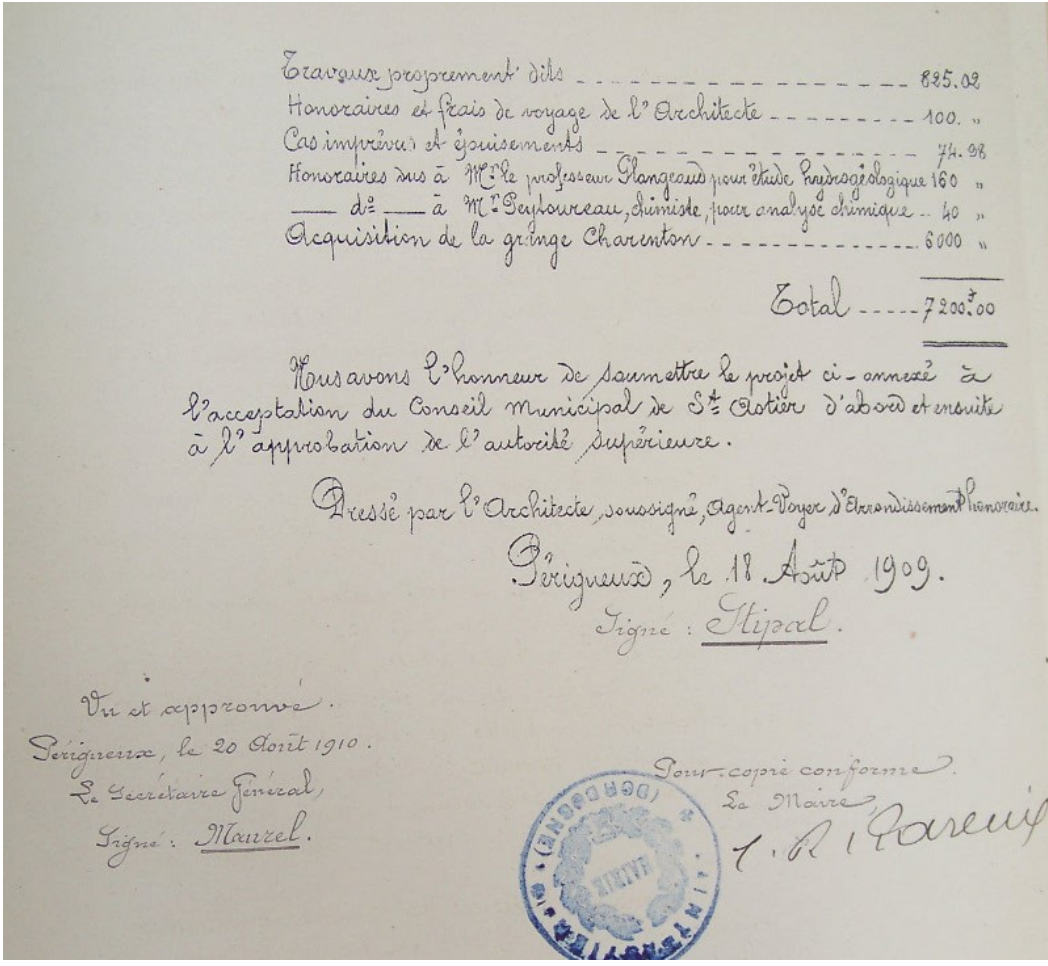 Travaux proprement dits ------------ 825.02
Honoraires et frais de voyage de l'Architecte --------- 100. "
Cas imprévus et épuisements ------------ 74.98
Honoraires dus à Mr le professeur Glangeaud pour étude hydrogéologique 160 "
—— do —— à Mr Peytoureau, chimiste, pour analyse chimique -- 40 "
Acquisition de la grange Charenton ------------ 6000 "
Total ----- 7200f00
Nous avons l'honneur de soumettre le projet ci-annexé à
l'acceptation du Conseil Municipal de St Astier d'abord et ensuite
à l'approbation de l'autorité supérieure.
Dressé par l'Architecte, soussigné, Agent-Voyer d'Arrondissement honoraire.
Périgueux, le 18 Août 1909.
Signé : Stipal.
Vu et approuvé.
Périgueux, le 20 Août 1910.
Le Secrétaire Général,
Signé : Maurel.
Pour copie conforme.
Le Maire,
MAIRIE
(DORDOGNE)